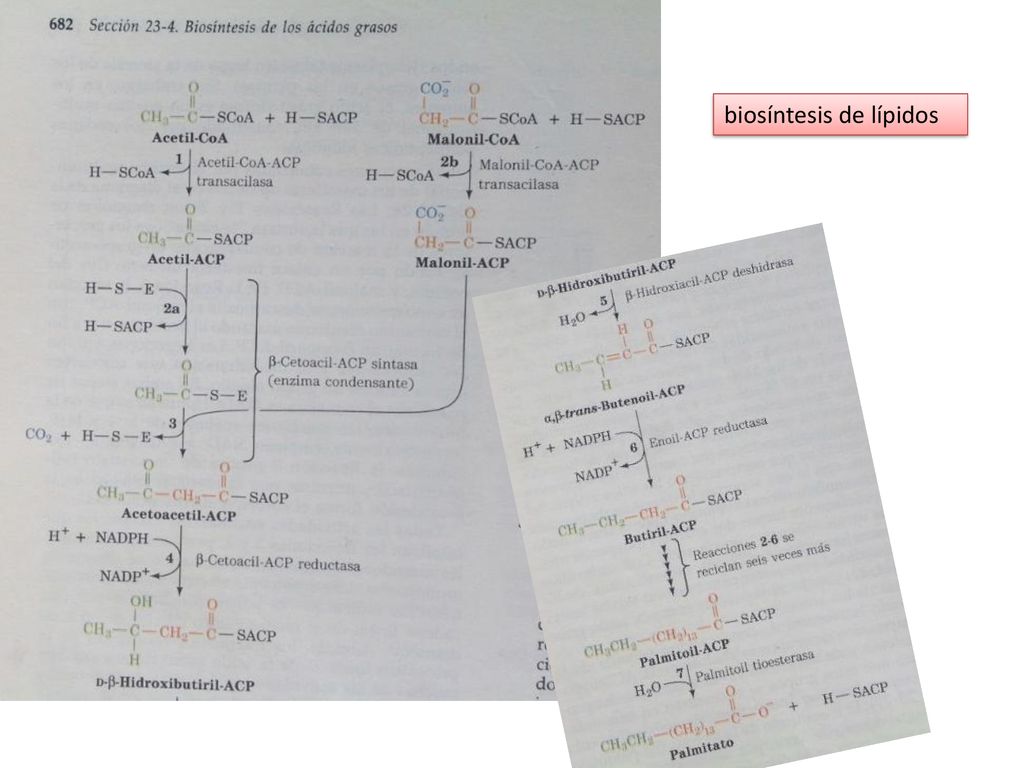 682 Sección 23-4. Biosíntesis de los ácidos grasos
biosíntesis de lípidos
O
CH₃—C—SCoA + H—SACP
Acetil-CoA
CO₂⁻ O
CH₂—C—SCoA + H—SACP
Malonil-CoA
1 Acetil-CoA-ACP
transacilasa
H—SCoA
2b Malonil-CoA-ACP
transacilasa
H—SCoA
O
CH₃—C—SACP
Acetil-ACP
CO₂⁻ O
CH₂—C—SACP
Malonil-ACP
H—S—E
2a
H—SACP
β-Cetoacil-ACP sintasa
(enzima condensante)
O
CH₃—C—S—E
3
CO₂ + H—S—E
O O
CH₃—C—CH₂—C—SACP
Acetoacetil-ACP
H⁺ + NADPH
4 β-Cetoacil-ACP reductasa
NADP⁺
OH O
CH₃—C—CH₂—C—SACP
H
D-β-Hidroxibutiril-ACP
D-β-Hidroxibutiril-ACP
5 β-Hidroxiacil-ACP deshidrasa
H₂O
H O
CH₃—C=C—C—SACP
H
α,β-trans-Butenoil-ACP
H⁺ + NADPH
6 Enoil-ACP reductasa
NADP⁺
O
CH₃—CH₂—CH₂—C—SACP
Butiril-ACP
Reacciones 2-6 se
reciclan seis veces más
O
CH₃CH₂—(CH₂)₁₃—C—SACP
Palmitoil-ACP
7 Palmitoil tioesterasa
H₂O
O
CH₃CH₂—(CH₂)₁₃—C—O⁻ + H—SACP
Palmitato